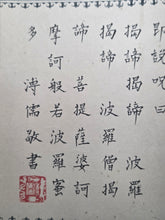 即說咒曰
揭諦揭諦 波
揭諦 波羅僧揭
諦 菩提薩婆訶
摩訶般若波羅蜜
多 溥儒敬書